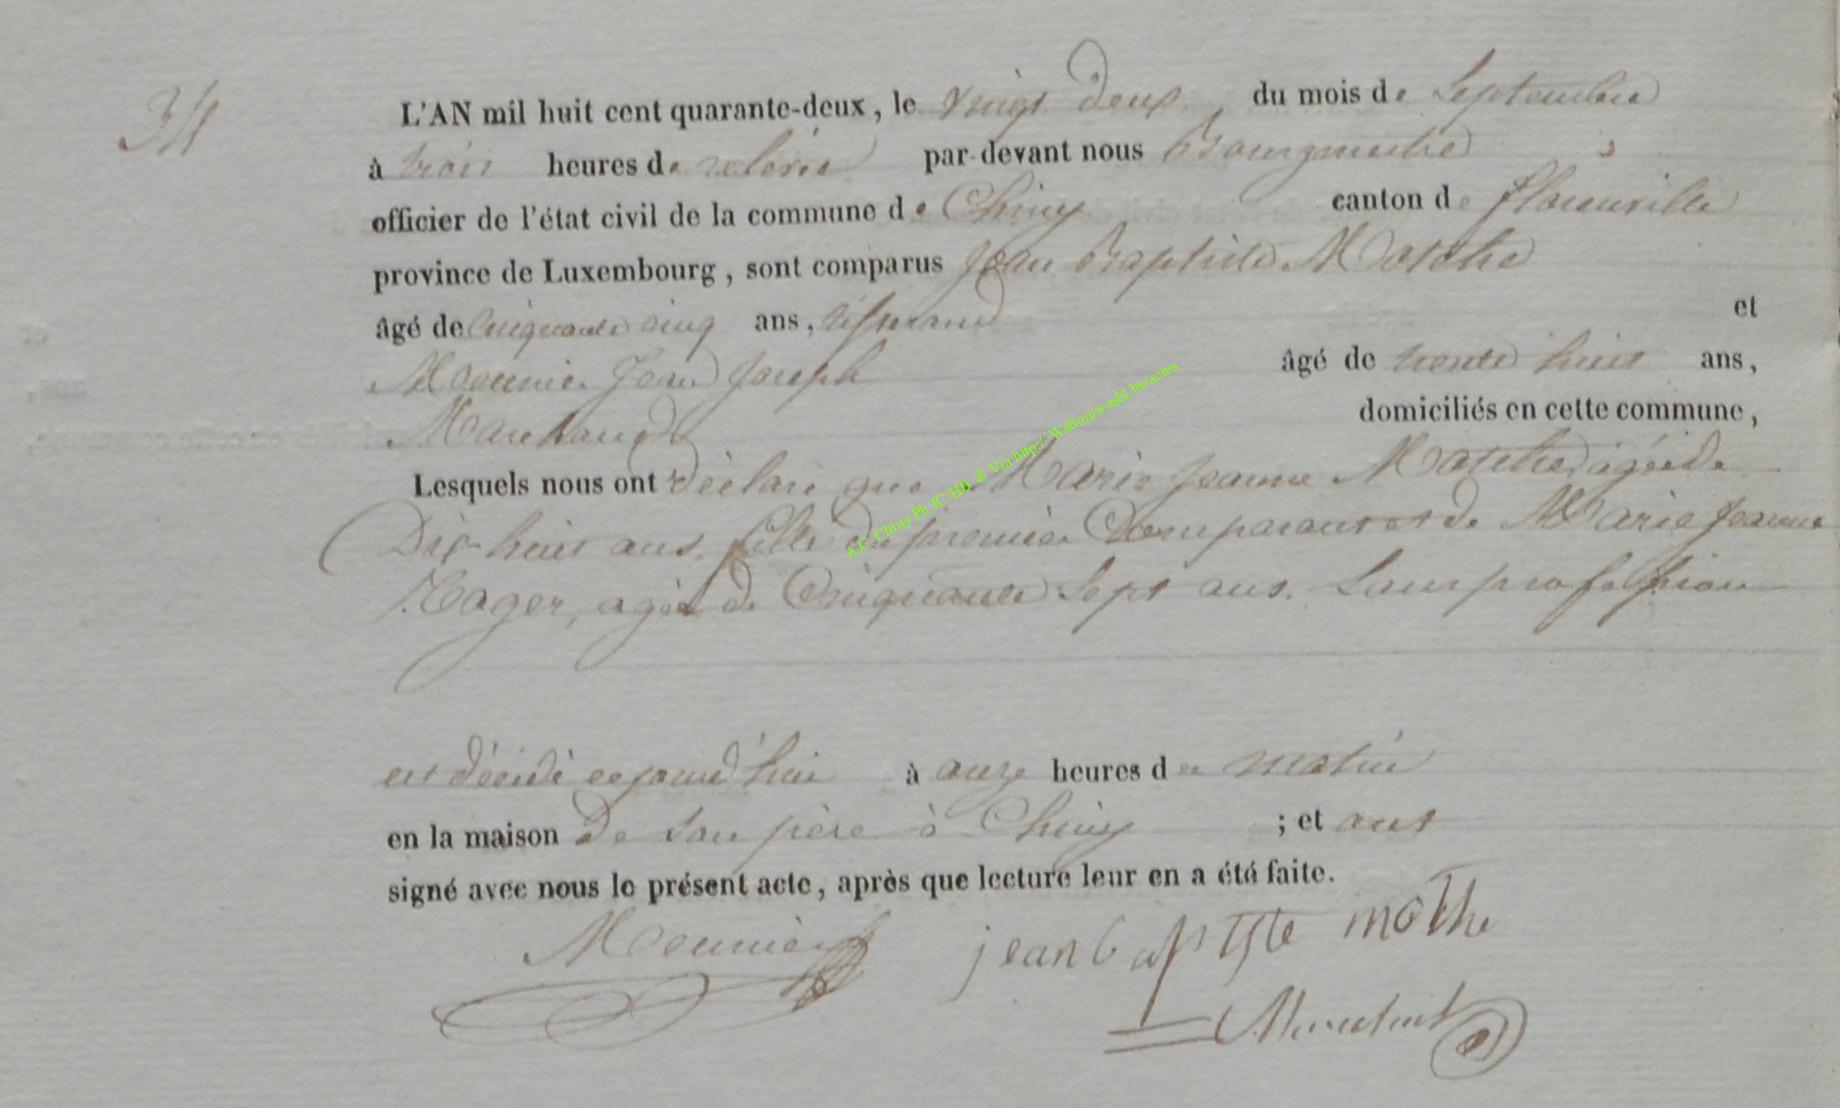 34
L'AN mil huit cent quarante-deux, le vingt deux du mois de Septembre
à trois heures de relevée par-devant nous Bourgmestre
officier de l'état civil de la commune de Chiny canton de florenville
province de Luxembourg, sont comparus Jean Baptiste Mothe
âgé de Cinquante cinq ans, et
Meunier Jean Joseph âgé de trente huit ans,
Marchand domiciliés en cette commune,
Lesquels nous ont déclaré que Marie Jeanne agée de
Dix-huit ans, fille du premier Comparant et de Marie Jeanne
agée de Cinquante Sept ans. Sans profession
est décédé cejourd'hui à onze heures du matin
en la maison De son père à Chiny ; et ont
signé avec nous le présent acte, après que lecture leur en a été faite.
Meunier jean baptiste mothe
A.C. Chiny Ph JC HB ® Via http://Wallonia-asbl.be/actes